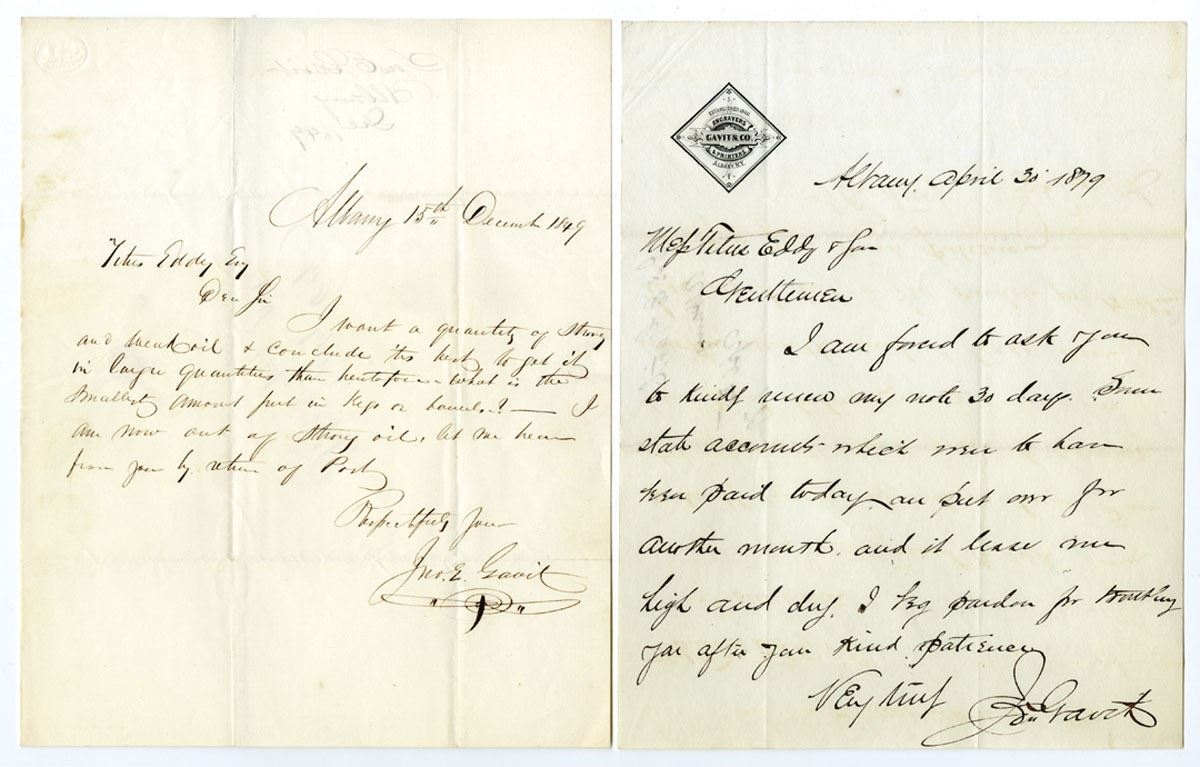 Albany 15th December 1849
Titus Eddy Esq
Dear Sir
I want a quantity of Strong
and weak oil & conclude its best to get it
in larger quantities than heretofore - what is the
Smallest amount put in Kegs or barrels? — I
am now out of Strong oil, let me hear
from you by return of Post
Respectfully Yours
Jno. E. Gavit
ESTABLISHED 1840
ENGRAVERS
GAVIT & CO.
& PRINTERS
ALBANY, N.Y.
Albany, April 30 1879
Mess Titus Eddy & Son
Gentlemen
I am forced to ask you
to kindly renew my note 30 days. Some
state accounts which were to have
been paid today are put over for
another month, and it leave me
high and dry, I beg pardon for troubling
you after your kind patience
Very truly
Gavit
Jno E Gavit
Albany
Dec 1849